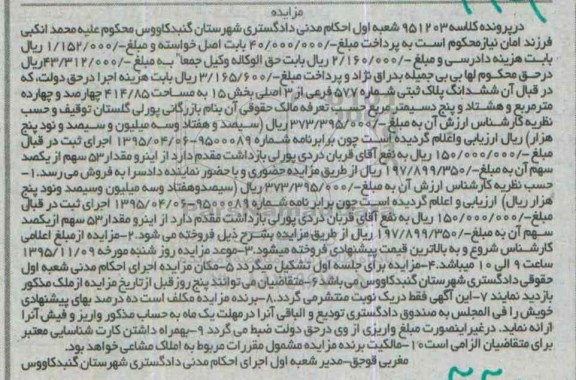 مزایده
در پرونده کلاسه ۹۵۱۲۰۳ شعبه اول احکام مدنی دادگستری شهرستان گنبدکاووس محکوم علیه محمد انکبی
فرزند امان نیاز محکوم است به پرداخت مبلغ ۴۰/۰۰۰/۰۰۰/- بابت اصل خواسته و مبلغ ۱/۱۵۲/۰۰۰/- ریال
بابت هزینه دادرسی و مبلغ ۲/۱۶۰/۰۰۰/- ریال بابت حق الوکاله وکیل جمعا" به مبلغ ۴۳/۳۱۲/۰۰۰/- ریال
در حق محکوم لها بی بی جمیله بدراق نژاد و پرداخت مبلغ ۳/۱۶۵/۶۰۰/- ریال بابت هزینه اجرا در حق دولت، که
در قبال آن ششدانگ پلاک ثبتی شماره ۵۷۷ فرعی از ۳ اصلی بخش ۱۵ به مساحت ۴۱۴/۸۵ چهارصد و چهارده
مترمربع و هشتاد و پنج دسیمتر مربع حسب تعرفه مالک حقوقی آن بنام بازرگانی پورلی گلستان توقیف و حسب
نظریه کارشناس ارزش آن به مبلغ ۳۷۳/۳۹۵/۰۰۰/- ریال (سیصد و هفتاد وسه میلیون و سیصد و نود پنج
هزار) ریال ارزیابی واعلام گردیده است چون برابر نامه شماره ۹۵۰۰۰۸۹-۱۳۹۵/۰۴/۰۶ اجرای ثبت در قبال
مبلغ ۱۵۰/۰۰۰/۰۰۰/- ریال به نفع آقای قربان دردی پورلی بازداشت مقدم دارد از اینرو مقدار ۵۳ سهم از یکصد
سهم آن به مبلغ ۱۹۷/۸۹۹/۳۵۰/- ریال از طریق مزایده حضوری و با حضور نماینده دادسرا به فروش می رسد. ۱-
حسب نظریه کارشناس ارزش آن به مبلغ ۳۷۳/۳۹۵/۰۰۰/- ریال (سیصدوهفتاد وسه میلیون وسیصد ونود پنج
هزار ریال) ارزیابی و اعلام گردیده است چون برابر نامه شماره ۹۵۰۰۰۸۹-۱۳۹۵/۰۴/۰۶ اجرای ثبت در قبال
مبلغ ۱۵۰/۰۰۰/۰۰۰/- ریال به نفع آقای قربان دردی پورلی بازداشت مقدم دارد از اینرو مقدار ۵۳ سهم از یکصد
سهم آن به مبلغ ۱۹۷/۸۹۹/۳۵۰/- ریال از طریق مزایده بشرح ذیل فروخته می شود. ۲-مزایده از مبلغ اعلامی
کارشناس شروع و به بالاترین قیمت پیشنهادی فروخته میشود. ۳-موعد مزایده روز شنبه مورخه ۱۳۹۵/۱۱/۰۹
ساعت ۹ الی ۱۰ میباشد. ۴-مزایده برای جلسه اول تشکیل میگردد ۵-مکان مزایده اجرای احکام مدنی شعبه اول
حقوقی دادگستری شهرستان گنبدکاووس می باشد ۶-متقاضیان می توانند پنج روز قبل از تاریخ مزایده از ملک مذکور
بازدید نمایند ۷-این آگهی فقط در یک نوبت منتشر می گردد. ۸-برنده مزایده مکلف است ده درصد بهای پیشنهادی
خویش را فی المجلس به صندوق دادگستری تودیع و الباقی آنرا در مهلت یک ماه به حساب مذکور واریز و فیش آنرا
ارائه نماید. در غیر اینصورت مبلغ واریزی از وی در حق دولت ضبط می گردد ۹-بهمراه داشتن کارت شناسایی معتبر
برای متقاضیان الزامی است ۱۰-مالکیت برنده مزایده مشمول مقررات مربوط به املاک مشاعی خواهد بود.
مغربی قوجق-مدیر شعبه اول اجرای احکام مدنی دادگستری شهرستان گنبدکاووس